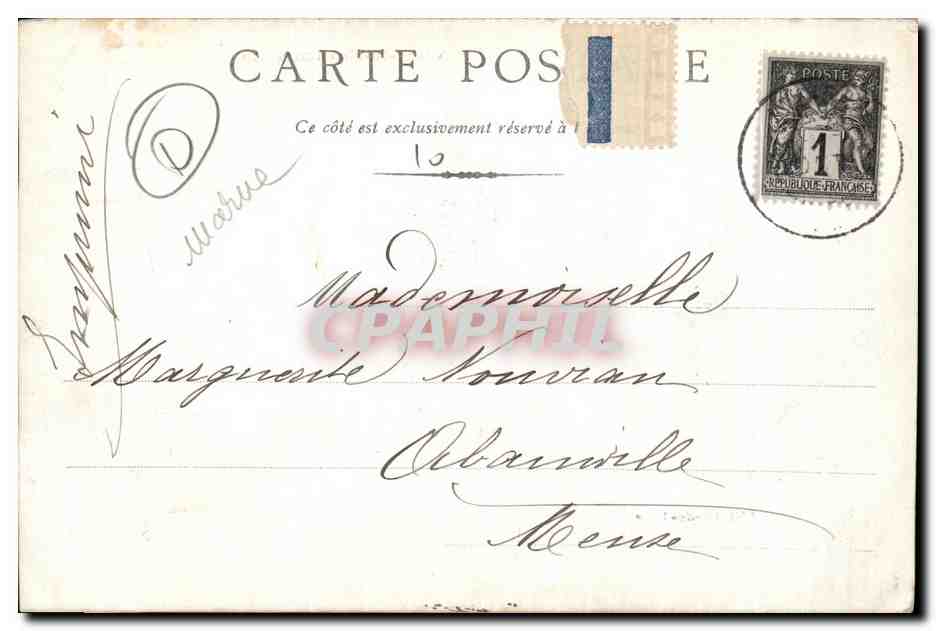 CARTE POS E
Ce côté est exclusivement réservé à l
POSTE
1
REPUBLIQUE FRANÇAISE
D
10
Marne
Imprimé
Mademoiselle
CPAPHIL
Marguerite Nouvian
Abainville
Meuse